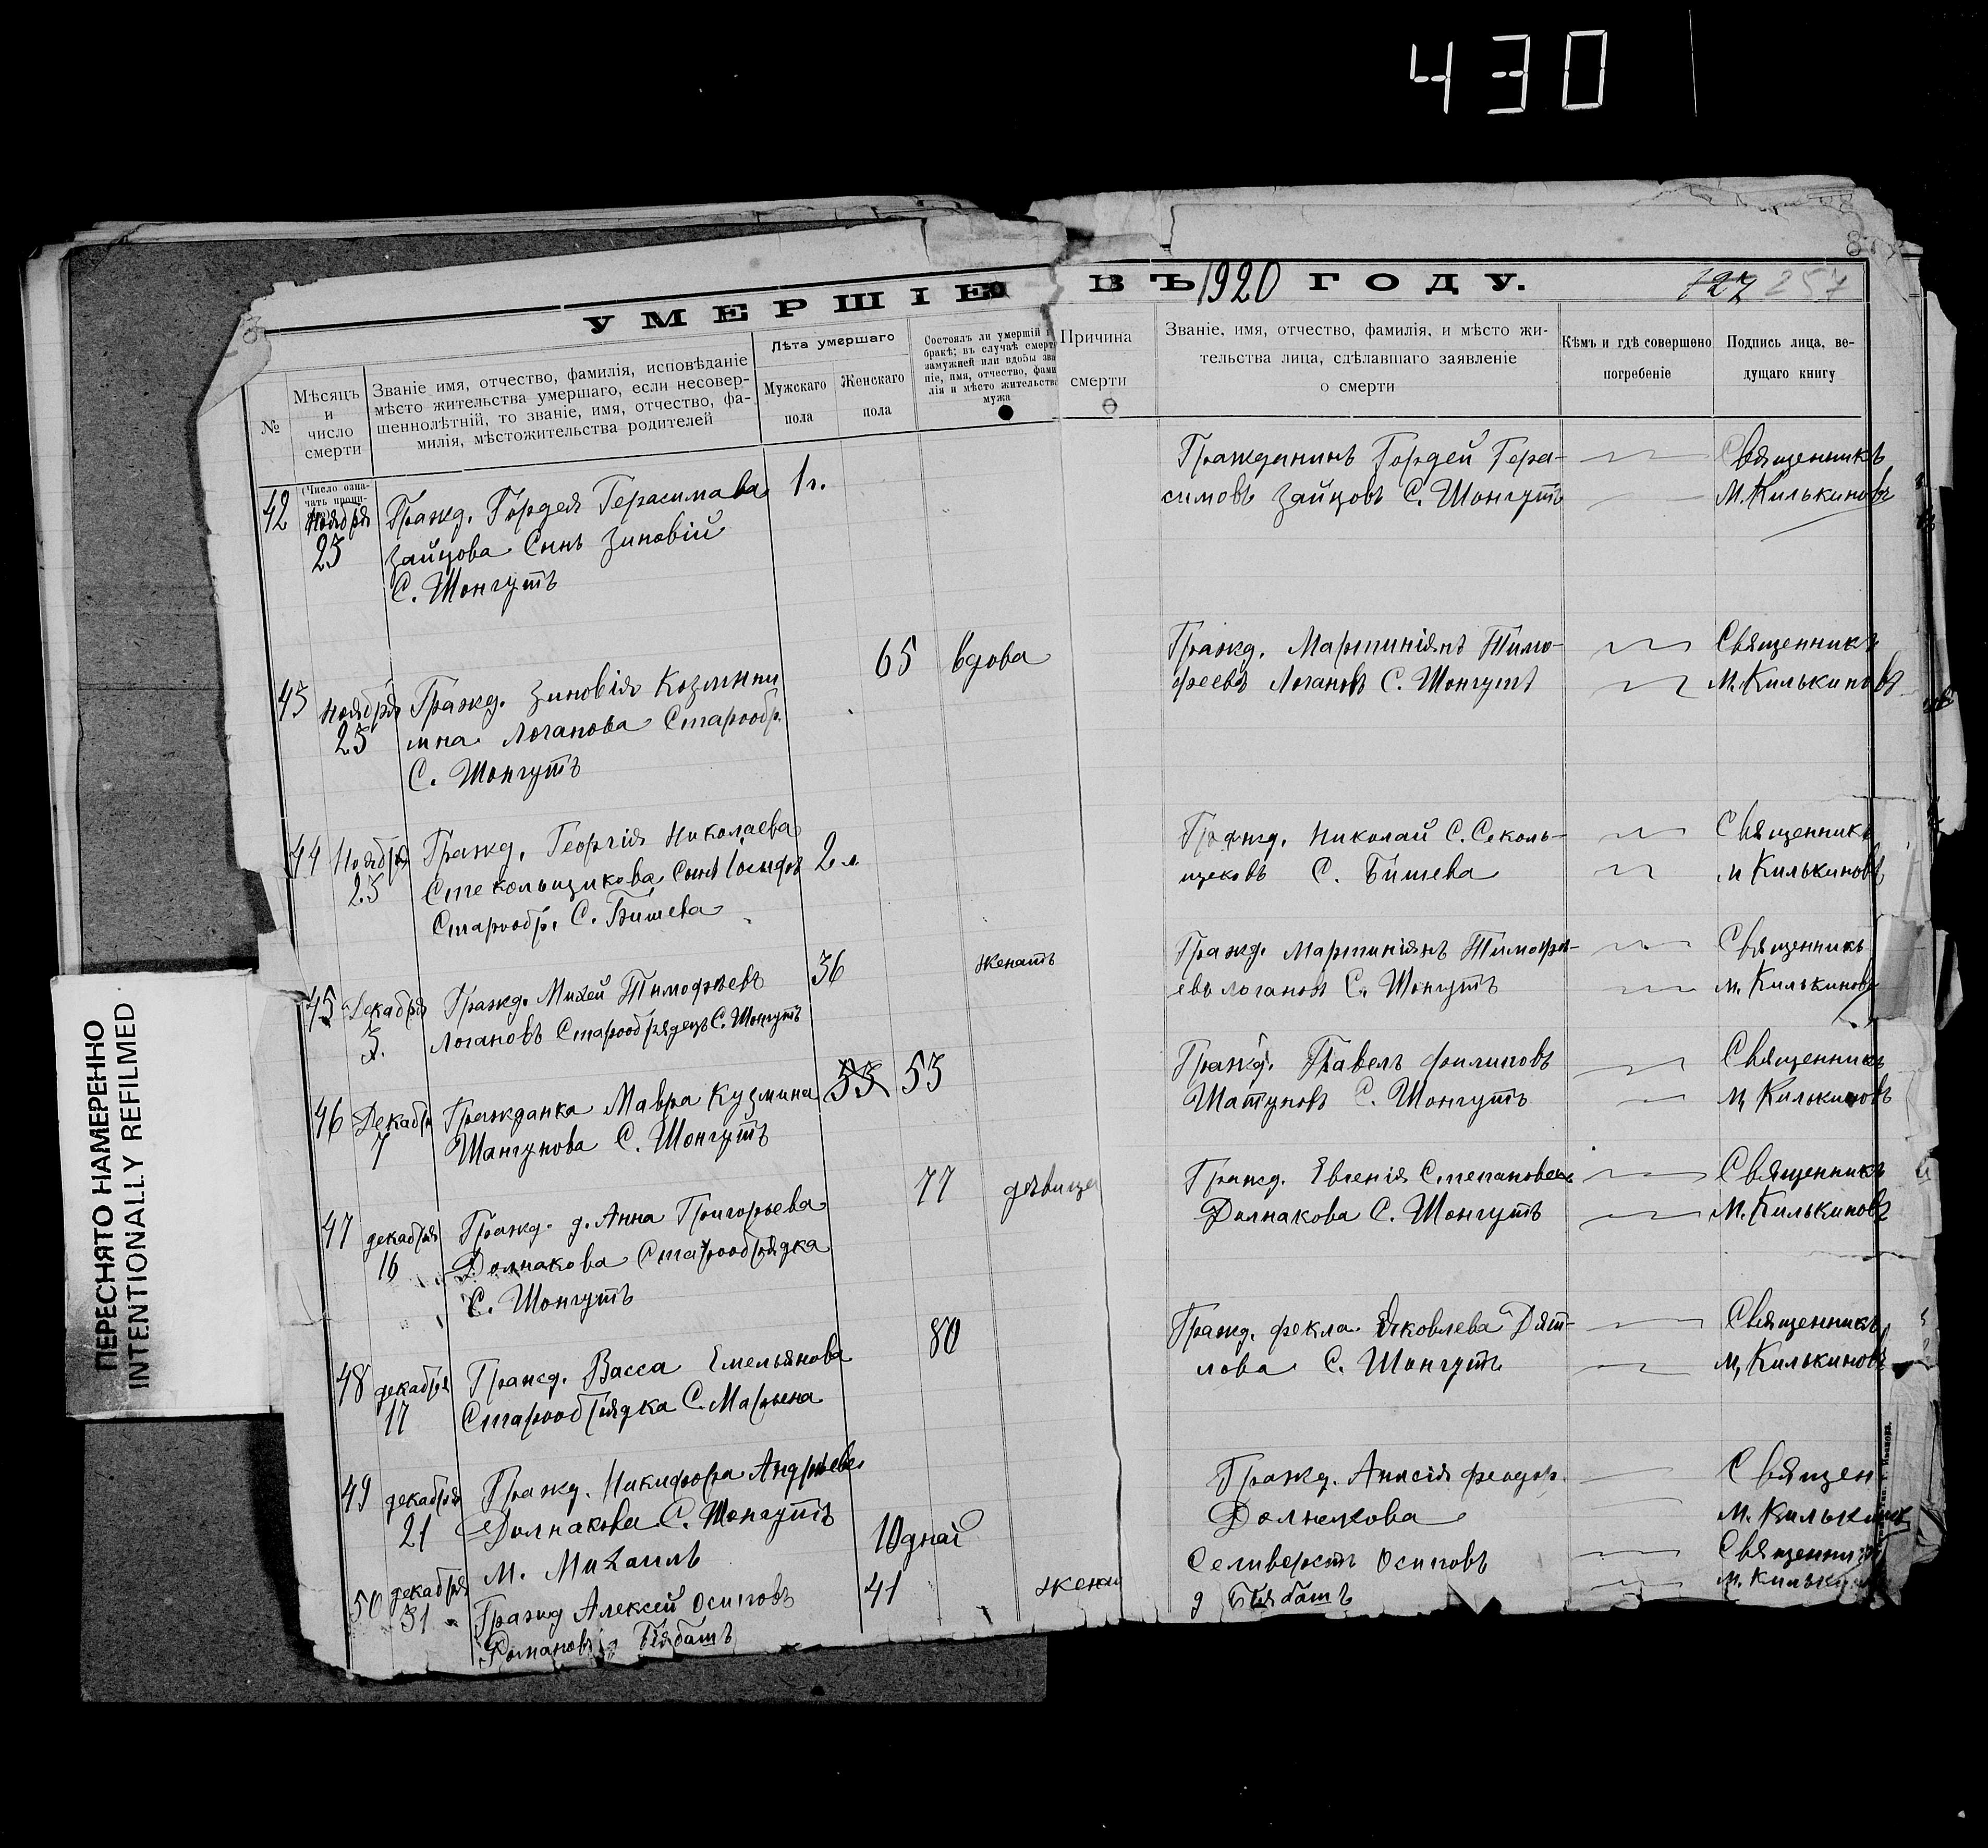 430
УМЕРШІЕ ВЪ 1920 ГОДУ.
127 257
№
Мѣсяцъ
и
число
смерти
(Число озна-
Званіе имя, отчество, фамилія, исповѣданіе
мѣсто жительства умершаго, если несовер-
шеннолѣтній, то званіе, имя, отчество, фа-
милія, мѣстожительства родителей
Лѣта умершаго
Мужскаго
пола
Женскаго
пола
Состоялъ ли умершій
бракѣ; въ случаѣ смерт
замужней или вдовы зва
ніе, имя, отчество, фами
лія и мѣсто жительства
мужа
Причина
смерти
Званіе, имя, отчество, фамилія, и мѣсто жи-
тельства лица, сдѣлавшаго заявленіе
о смерти
Кѣмъ и гдѣ совершено
погребеніе
Подпись лица, ве-
дущаго книгу
42 Ноября 25
Гражд. Гордея Герасимова
Зайцова Сынъ Зиновій
С. Шонгутъ
1 г.
Гражданинъ Гордей Гера-
симовъ Зайцовъ С. Шонгутъ
Священникъ
М. Килькиновъ
43 Ноября 25
Гражд. Зиновія Козьмини
шна Логанова Старообр.
С. Шонгутъ
65 вдова
Гражд. Мартиніянъ Тимо-
феевъ Логановъ С. Шонгутъ
Священникъ
М. Килькиновъ
44 Ноября 25
Гражд. Георгія Николаева
Стекольщикова Сынъ Іосифъ
Старообр. С. Бишева
2 л
Гражд. Николай С. Секоль-
щековъ С. Бишева
Священникъ
М Килькиновъ
45 Декабря 3.
Гражд. Михей Тимофѣевъ
Логановъ Старообрядецъ С. Шонгутъ
36 женатъ
Гражд. Мартиніянъ Тимофе-
евъ Логановъ С. Шонгутъ
Священникъ
М. Килькиновъ
46 Декабря 7
Гражданка Мавра Кузмина
Шангунова С. Шонгутъ
53 53
Гражд. Павелъ Филиповъ
Шатуновъ С. Шонгутъ
Священникъ
М. Килькиновъ
47 декабря 16
Гражд. д. Анна Григорьева
Долнакова Старообрядка
С. Шонгутъ
77 дѣвица
Гражд. Евгенія Степановна
Долнакова С. Шонгутъ
Священникъ
М. Килькиновъ
48 декабря 17
Гражд. Васса Емельянова
Старообрядка С. Марьена
80
Гражд. Фекла Яковлева Дят-
лова С. Шонгутъ
Священникъ
М. Килькиновъ
49 декабря 21
Гражд. Никифора Андрѣева
Долнакова С. Шонгутъ
М. Михаилъ
10 дней
Гражд. Анисія Феодор.
Долнекова
Священ
М. Килькинов
50 декабря 31
Гражд Алексей Осиповъ
Романовъ д Биябашъ
41 жена
Селиверстъ Осиповъ
д Биябашъ
Священник
М. Кильки
ПЕРЕСНЯТО НАМЕРЕННО
INTENTIONALLY REFILMED